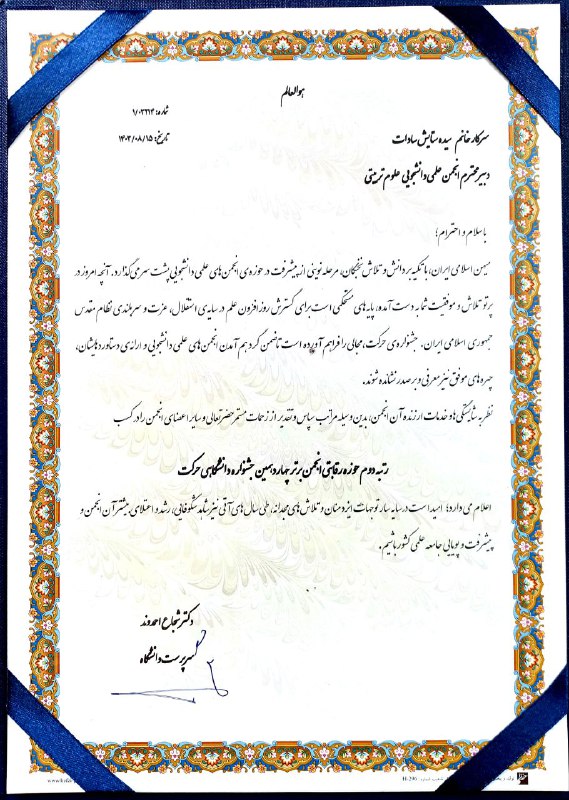 هوالعالم
شماره: ۹/۰۲۲۱۴
تاریخ: ۱۴۰۳/۰۸/۱۵
سرکار خانم سیده ستایش سادات
دبیر محترم انجمن علمی دانشجویی علوم تربیتی
با سلام و احترام؛
میهن اسلامی ایران، با تکیه بر دانش و تلاش نخبگان، مرحله نوینی از پیشرفت در حوزه‌ی انجمن‌های علمی دانشجویی پشت سر می‌گذارد. آنچه امروز در
پرتو تلاش و موفقیت شما به دست آمده، پایه‌های مستحکمی است برای گسترش روزافزون علم در سایه‌ی استقلال، عزت و سربلندی نظام مقدس
جمهوری اسلامی ایران. جشنواره‌ی حرکت، مجالی را فراهم آورده است تا ضمن گردهم آمدن انجمن‌های علمی دانشجویی و ارائه‌ی دستاوردهایشان،
چهره‌های موفق نیز معرفی و بر صدر نشانده شوند.
نظر به شایستگی‌ها و خدمات ارزنده آن انجمن، بدین وسیله مراتب سپاس و تقدیر از زحمات مستمر حضرتعالی و سایر اعضای انجمن را در کسب
رتبه دوم حوزه رقابتی انجمن برتر چهاردهمین جشنواره دانشگاهی حرکت
اعلام می دارد؛ امید است در سایه سار توجهات ایزد منان و تلاش‌های مجدانه، طی سال‌های آتی نیز شاهد شکوفایی، رشد و اعتلای بیشتر آن انجمن و
پیشرفت و پویایی جامعه علمی کشور باشیم.
دکتر شجاع احمدوند
سرپرست دانشگاه
H-296